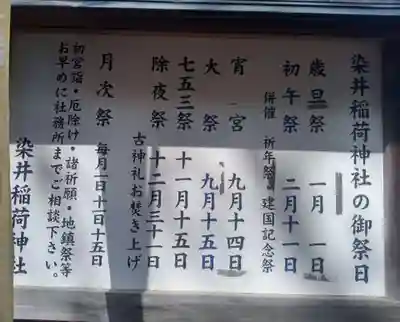 染井稲荷神社の御祭日
歳旦祭 一月一日
初午祭 二月十一日
併催 祈年祭 建国記念祭
宵宮 九月十四日
大祭 九月十五日
七五三祭 十一月十五日
除夜祭 十二月三十一日
古神礼お焚き上げ
月次祭 毎月一日十五日
初宮詣・厄除け・諸祈願・地鎮祭等
お早めに社務所までご相談下さい。
染井稲荷神社